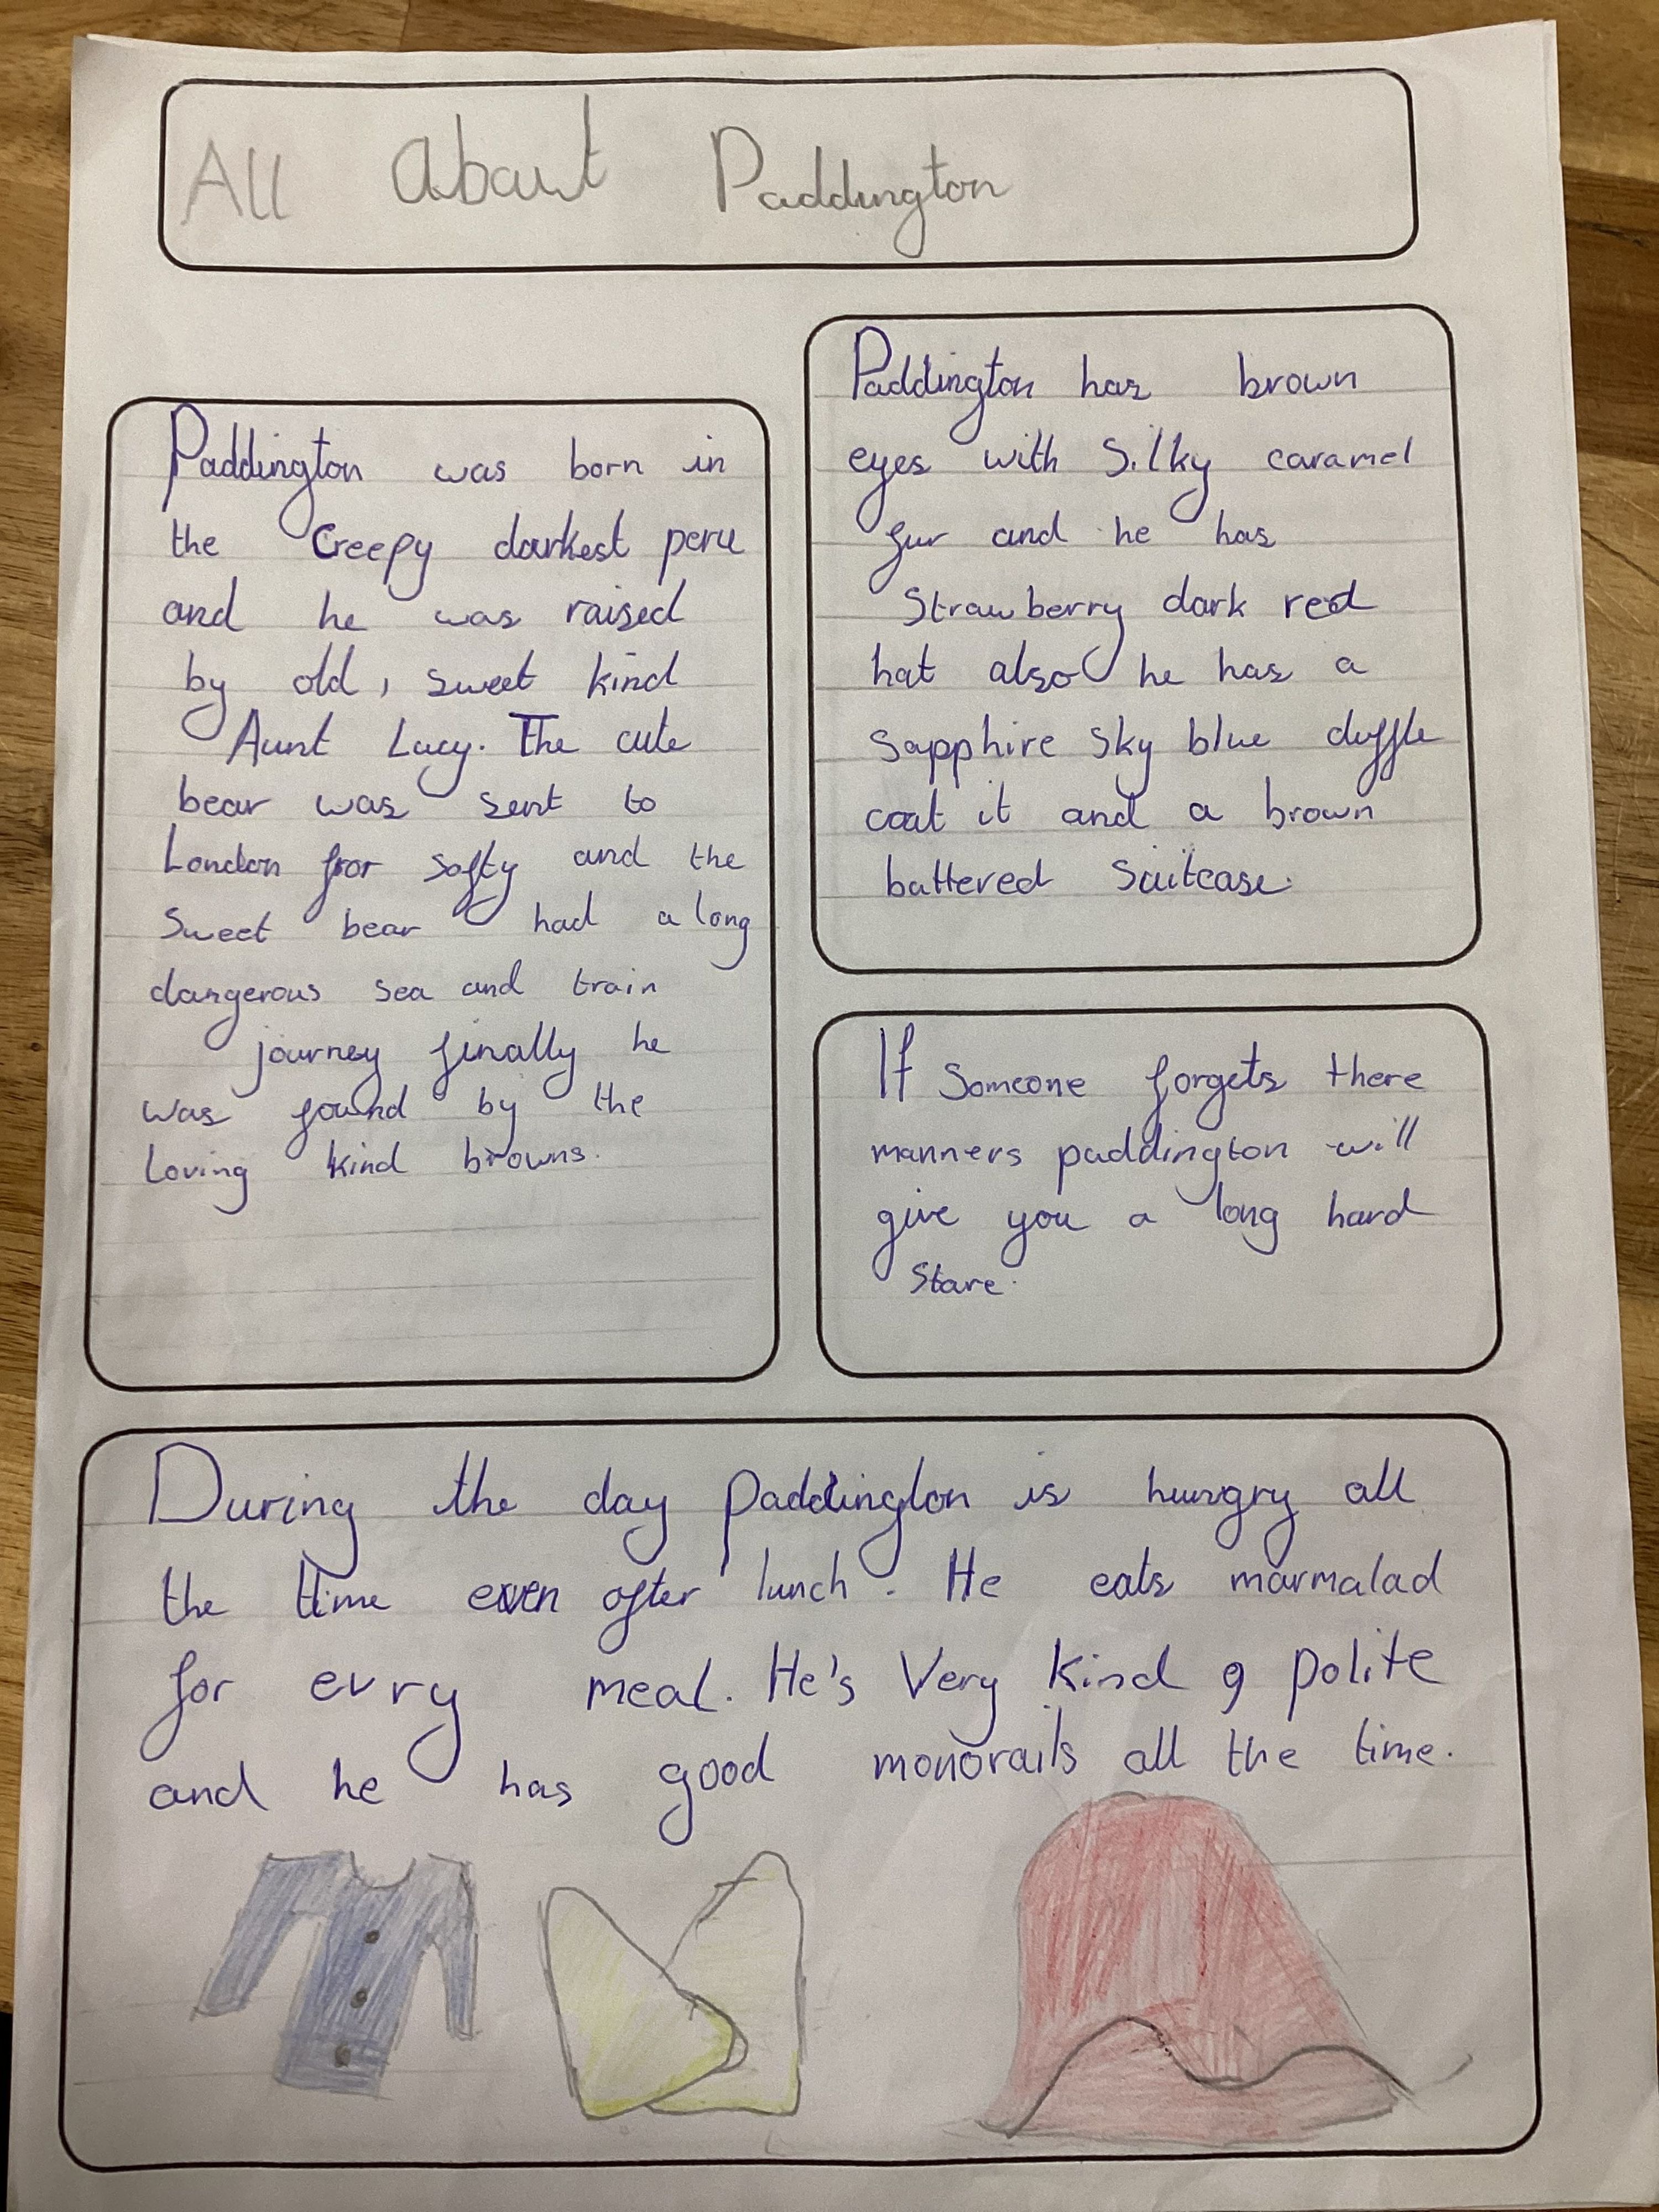 All about Paddington
Paddington was born in
the Creepy darkest peru
and he was raised
by old, sweet kind
Aunt Lucy. The cute
bear was sent to
London for safty and the
Sweet bear had a long
dangerous sea and train
journey finally he
was found by the
loving kind browns.
Paddington has brown
eyes with Silky caramel
fur and he has
Strawberry dark red
hat also he has a
sapphire sky blue duffle
coat it and a brown
battered Suitcase.
If Someone forgets there
manners paddington will
give you a long hard
Stare.
During the day paddington is hungry all
the time even after lunch. He eats marmalad
for evry meal. He's Very kind, polite
and he has good monorails all the time.